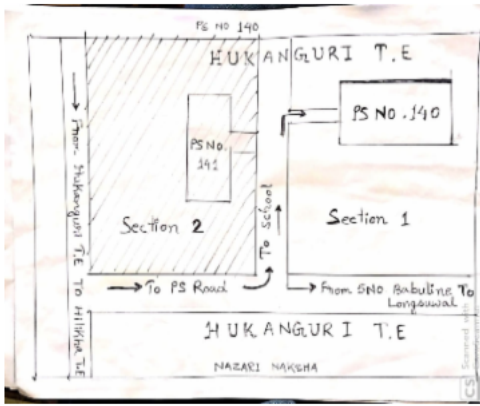 PS NO 140
HUKANGURI T.E
PS NO. 140
PS NO.
141
Section 2
Section 1
To School
From Hukanguri T.E To Hilikha T.E
To PS Road
From SNO Babuline To
Longsuwal
HUKANGURI T.E
NAZARI NAKSHA
CS Scanned with